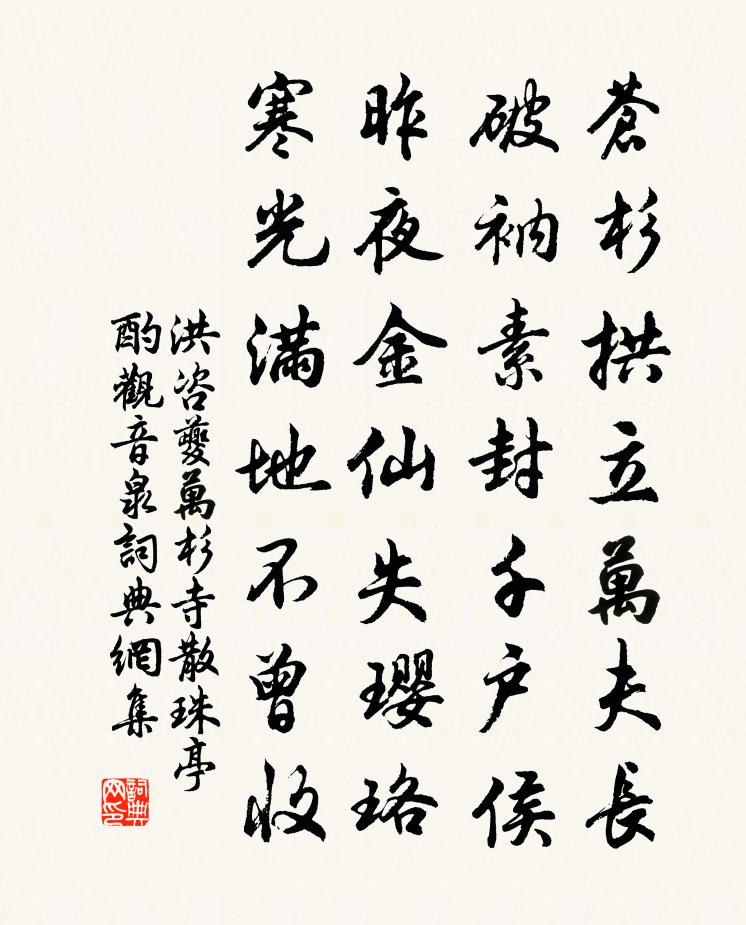 蒼杉拱立萬夫長
破衲素封千戶侯
昨夜金仙失瓔珞
寒光滿地不曾收
洪咨夔萬杉寺散珠亭
酌觀音泉詞典網集
詞典
网印